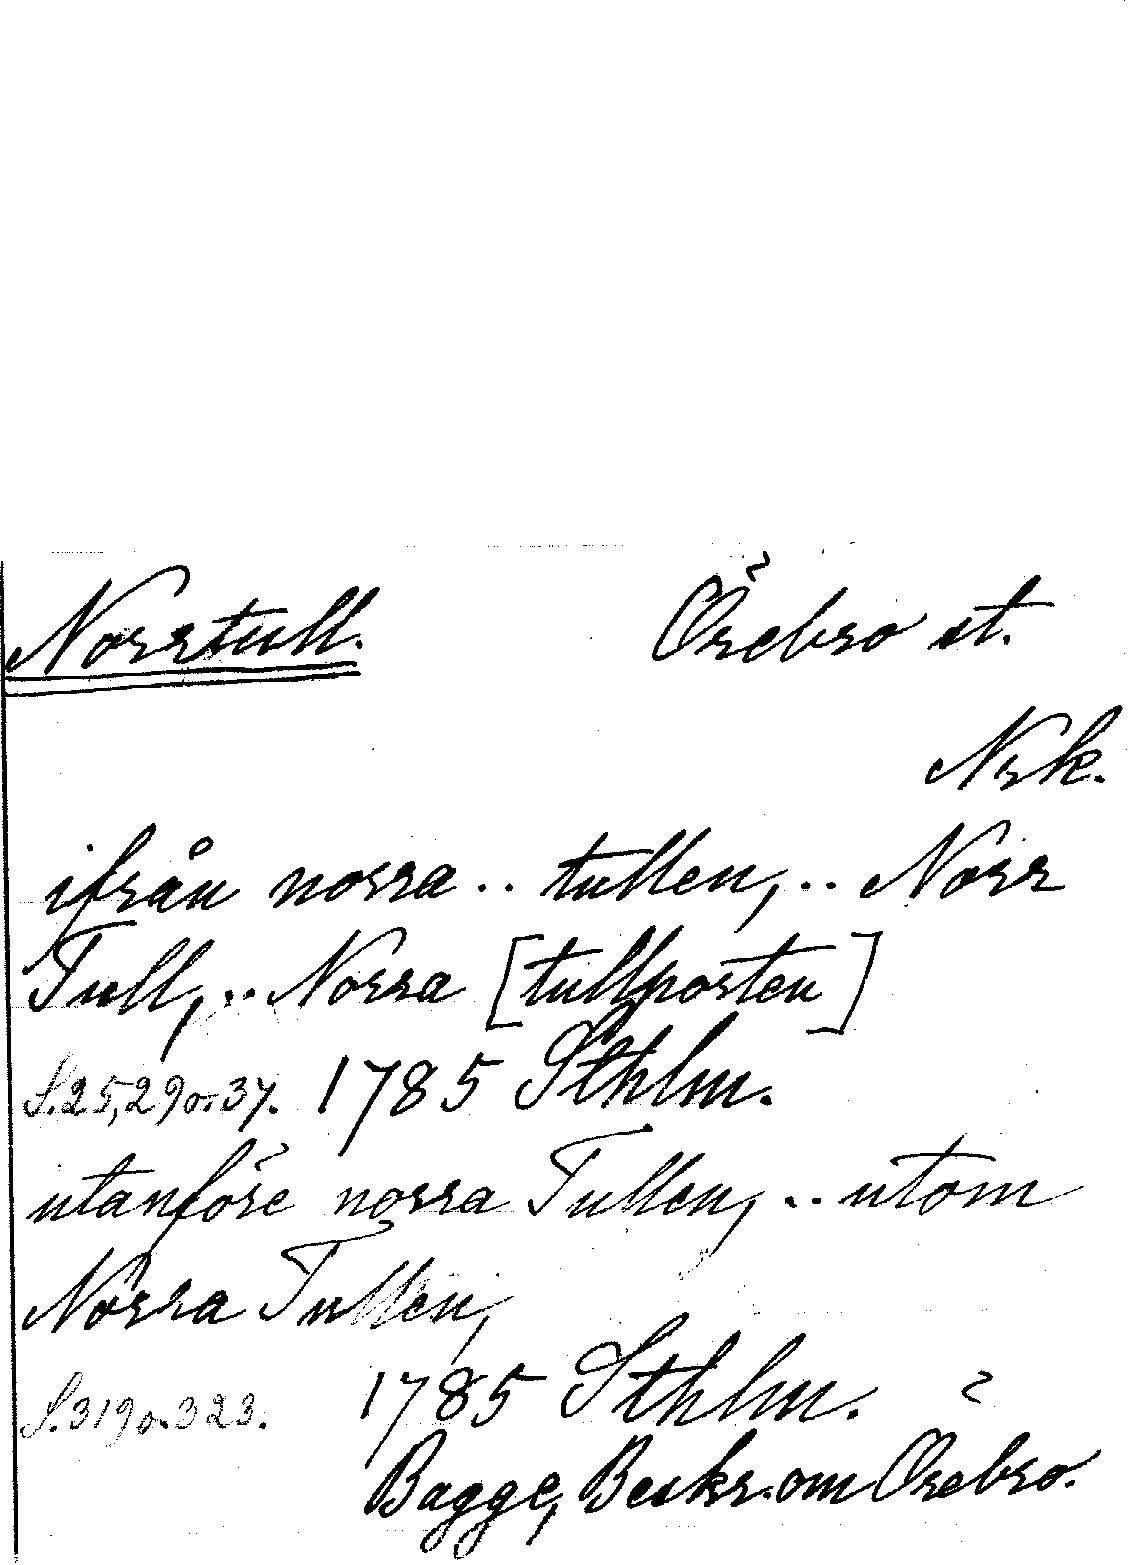 Norrtull. Örebro st.
Nrk.
ifrån norra .. tullen, .. Norr
Tull, .. Norra [tullporten]
S. 25, 29 o. 37. 1785 Sthlm.
utanföre norra Tullen, .. utom
Norra Tullen,
S. 319 o. 323. 1785 Sthlm.
Bagge, Beskr. om Örebro.